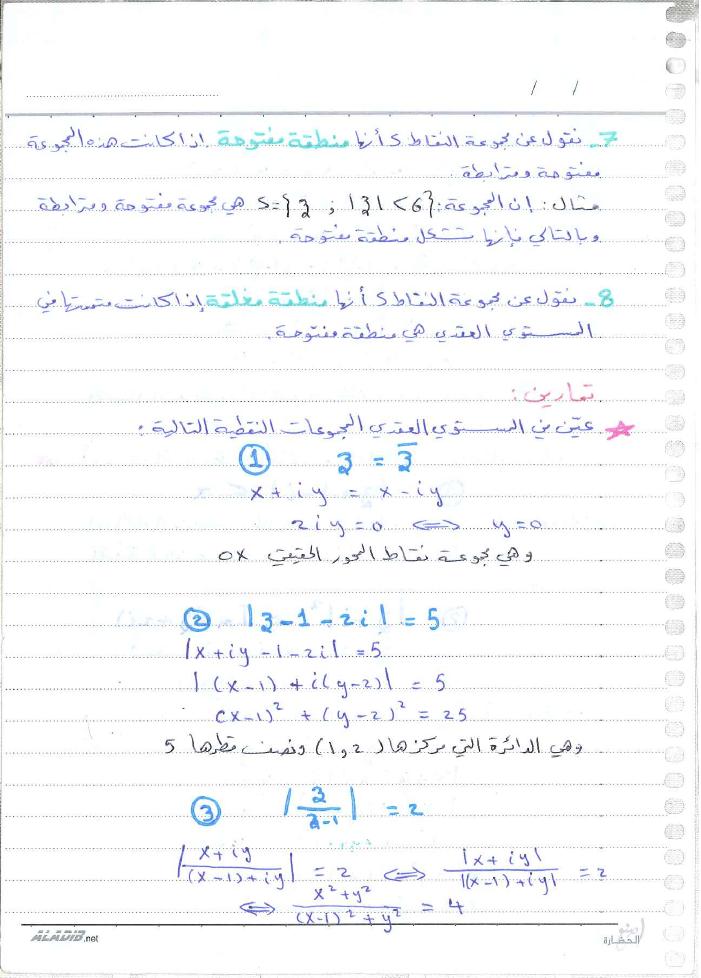 / /
7- نقول عن مجموعة النقاط S أنها منطقة مفتوحة إذا كانت هذه المجموعة
مفتوحة ومترابطة.
مثال: إن المجموعة: S={z ; |z|<6} هي مجموعة مفتوحة ومترابطة
وبالتالي فإنها تشكل منطقة مفتوحة.
8- نقول عن مجموعة النقاط S أنها منطقة مغلقة إذا كانت متممتها في
المستوي العقدي هي منطقة مفتوحة.
تمارين:
★ عيّن في المستوي العقدي المجموعات النقطية التالية:
① z = z̅
x + iy = x - iy
2iy = 0 ⟺ y = 0
وهي مجموعة نقاط المحور الحقيقي ox
② |z - 1 - 2i| = 5
|x + iy - 1 - 2i| = 5
|(x-1) + i(y-2)| = 5
(x-1)² + (y-2)² = 25
وهي الدائرة التي مركزها (1,2) ونصف قطرها 5
③ |z/(z-1)| = 2
|(x+iy)/((x-1)+iy)| = 2 ⟺ |x+iy|/|(x-1)+iy| = 2
⟺ (x²+y²)/((x-1)²+y²) = 4
ALADIB.net
الحضارة